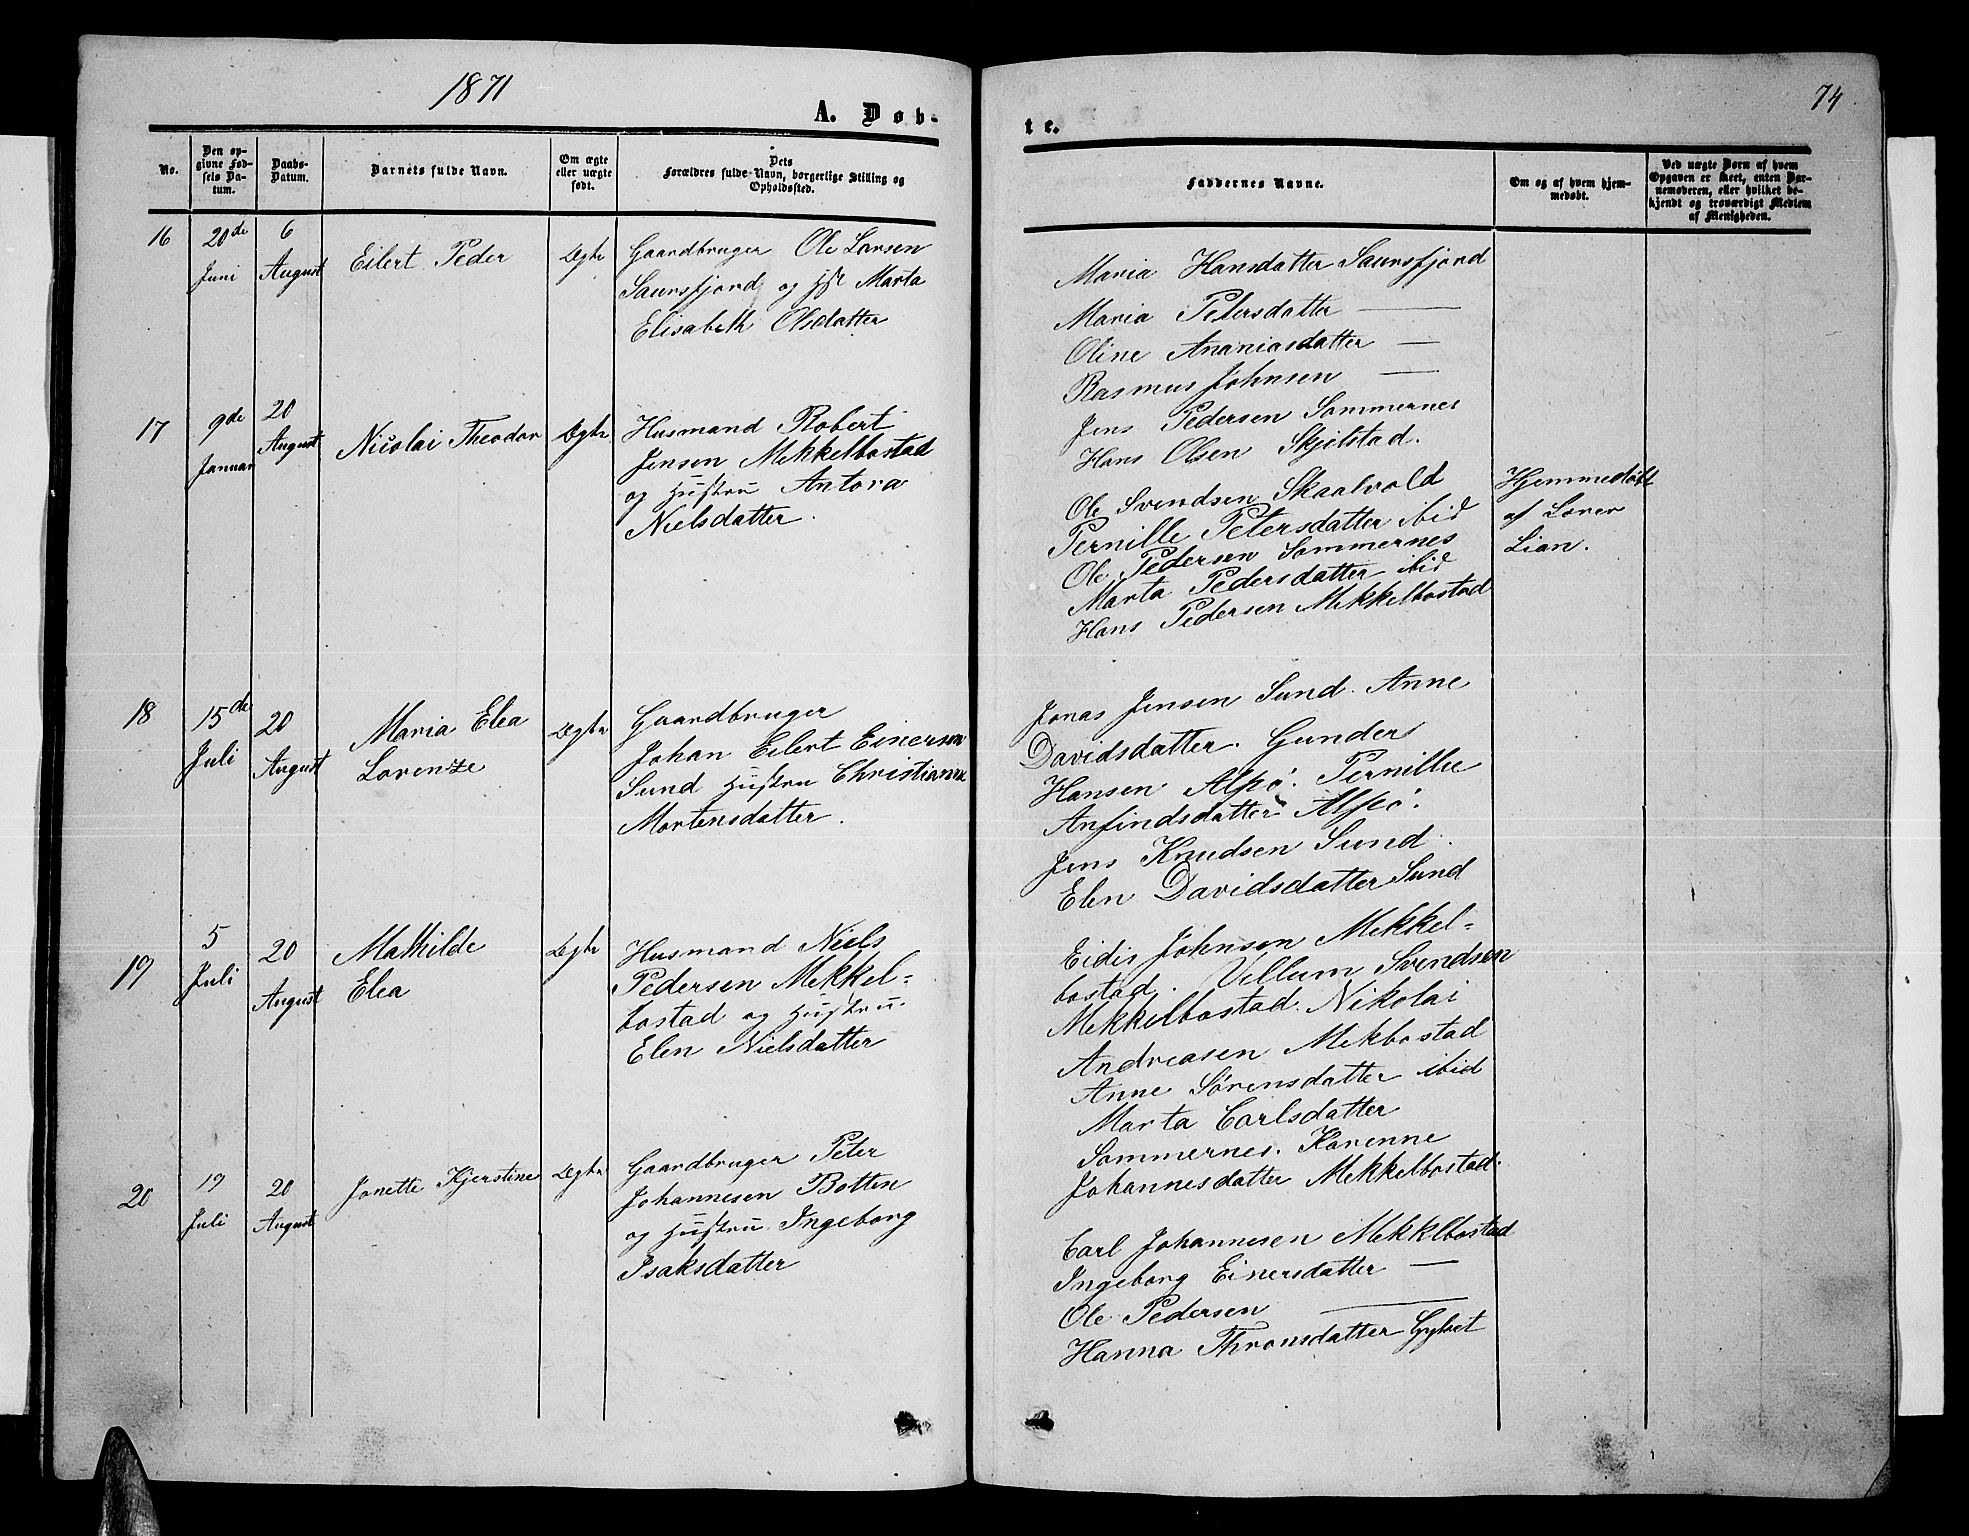 1871
74
A. Døb-
te.
No.
Den op-
givne Fød-
sels Da-
tum.
Daabs-
Datum.
Barnets fulde Navn.
Om ægte
eller uægte
født.
Dets
Forældres fulde Navn, borgerlige Stilling og
Opholdssted.
Faddernes Navne.
Om og af hvem hjem-
medøbt.
Ved uægte Børn af hvem
Opgaven er skeet, enten Bar-
nemoderen, eller hvilket be-
kjendt og troværdigt Medlem
af Menigheden.
16
20de
Juni
6
August
Eilert Peder
Ægte
Gaardbruger Ole Larsen
Saursfjord og Hst Marta
Elisabeth Olsdatter
Maria Hansdatter Saursfjord
Maria Petersdatter —
Oline Ananiasdatter —
Rasmus Johnsen —
Jens Pedersen Sommernes
Hans Olsen Skjelstad.
17
9de
Januar
20
August
Nicolai Theodor
Ægte
Husmand Robert
Jensen Mekkelbostad
og Hustru Antora
Nielsdatter.
Ole Svendsen Skaalvold
Pernille Petersdatter ibid
Ole Pedersen Sommernes
Marta Pedersdatter ibid
Hans Pedersen Mekkelbostad
Hjemmedøbt
af
Lian.
18
15de
Juli
20
August
Maria Elea
Lorenze
Ægte
Gaardbruger
Johan Eilert Einersen
Sund Hustru Christianna
Mortensdatter.
Jonas Jensen Sund. Anne
Davidsdatter. Gunder
Hansen Alsø. Pernille
Anfindsdatter Alsø.
Jens Knudsen Sund.
Elen Davidsdatter Sund
19
5
Juli
20
August
Mathilde
Elea
Ægte
Husmand Niels
Pedersen Mekkel-
bostad og Hustru
Elen Nielsdatter
Eidis Johnsen Mekkel-
bostad. Villum Svendsen
Mekkelbostad. Nikolai
Andreasen Mekbostad
Anne Sørensdatter ibid
Marta Carlsdatter
Sommernes. Karenne
Johannesdatter Mekkelbostad.
20
19
Juli
20
August
Jonette Kjerstine
Ægte
Gaardbruger Peter
Johannesen Botten
og Hustru Ingeborg
Isaksdatter
Carl Johannesen Mekklbostad
Ingeborg Einersdatter —
Ole Pedersen —
Hanna Thronsdatter